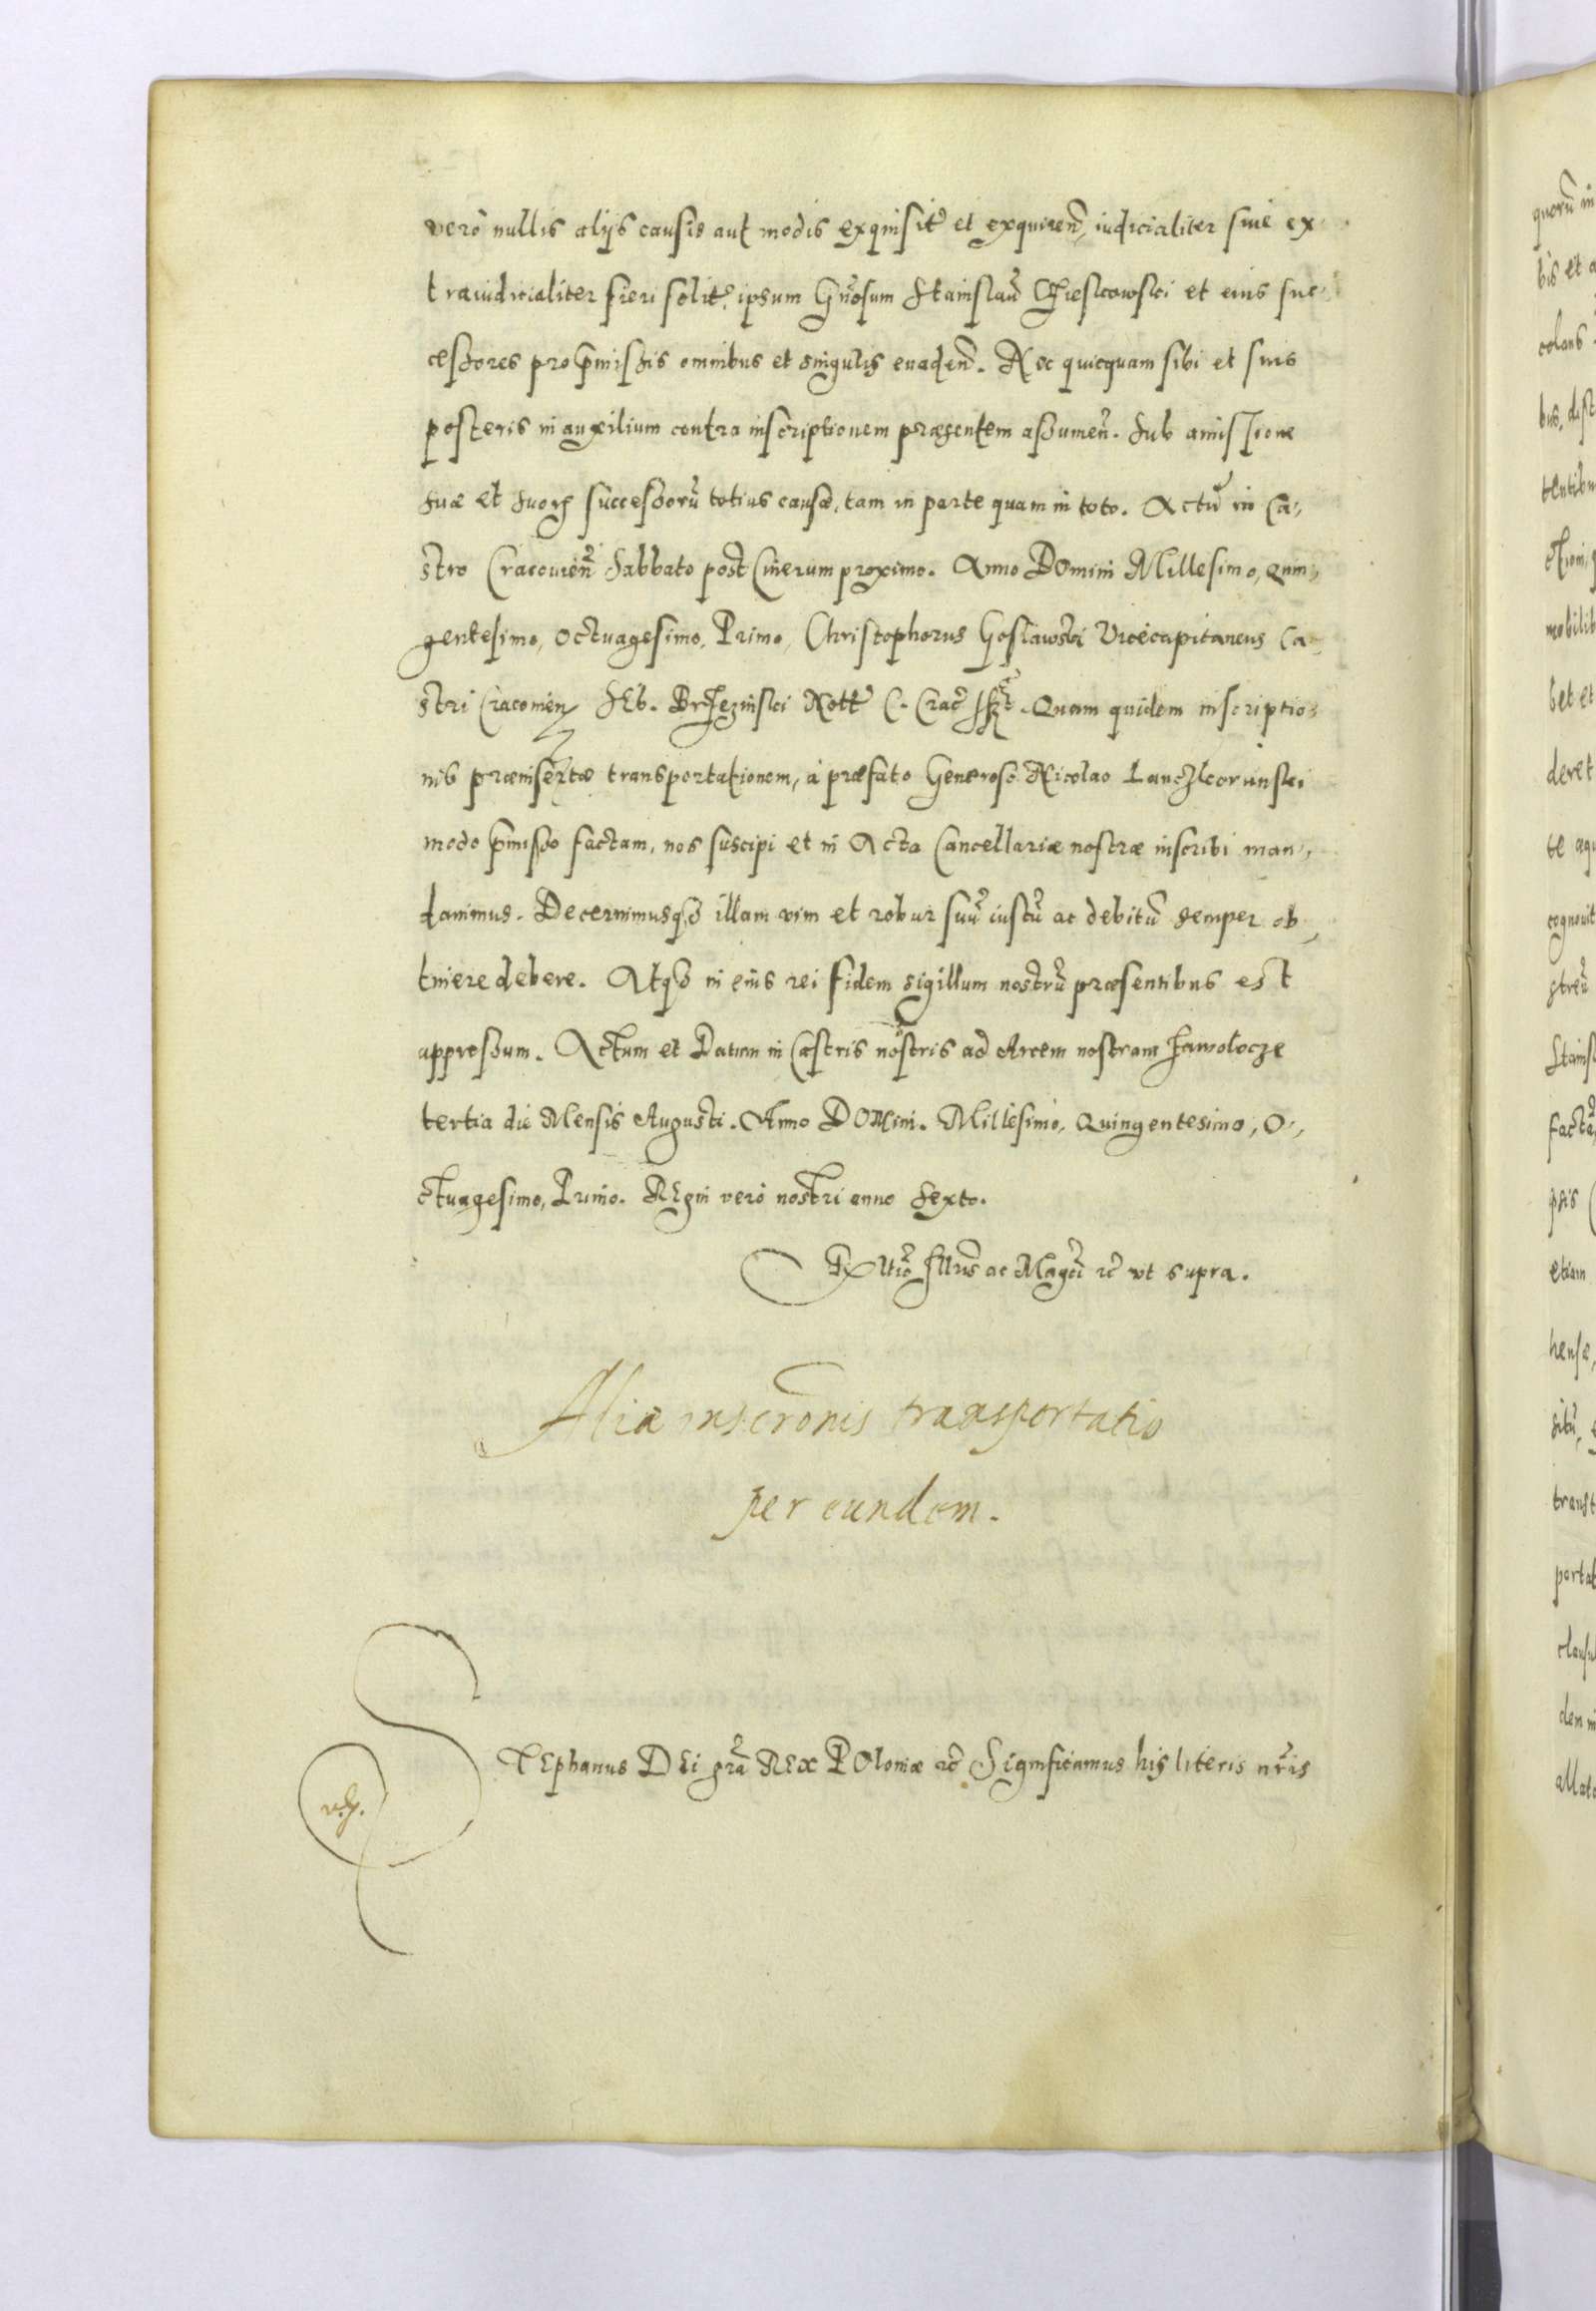 vero nullis alijs causis aut modis exquisit et exquiren, iudicialiter siue ex
traiudicialiter fieri solit, ipsum Gnosum Stanislau Chieskowski et eius suc
cessores pro pmissis omnibus et singulis euaden. Nec quicquam sibi et suis
posteris in auxilium contra inscriptionem præsentem assumen. Sub amissione
suæ et suoꝝ successorũ totius causæ, tam in parte quam in toto. Actũ in Ca,,
stro Cracouien Sabbato post Cinerum proximo. Anno DOmini Millesimo, Quin,,
gentesimo, Octuagesimo, Primo, Christophorus Goslawski Vicecapitaneus Ca
stri Cracouien SEb. Brzezinski Nott C. Crac. Quam quidem inscriptio,,
nis præinsertæ transportationem, à præfato Generoso Nicolao Lanczkorunski
modo pmisso factam, nos suscipi et in Acta Cancellariæ nostræ inscribi man,,
dauimus. Decernimusqȝ illam vim et robur suũ iustũ ac debitũ semper ob,,
tinere debere. Atqȝ in eius rei fidem sigillum nostrũ præsentibus est
appressum. Actum et Datum in Castris nostris ad Arcem nostram Zawolocze
tertia die Mensis Augusti. Anno DOMini. Millesimo, Quingentesimo, O,,
ctuagesimo, Primo. REgni verò nostri anno Sexto.
Rltio Illris ac Magci ꝛc vt supra.
Alia inscronis transportatio
per eundem.
STEphanus DEi gra REx POloniæ ꝛc Significamus his literis nris